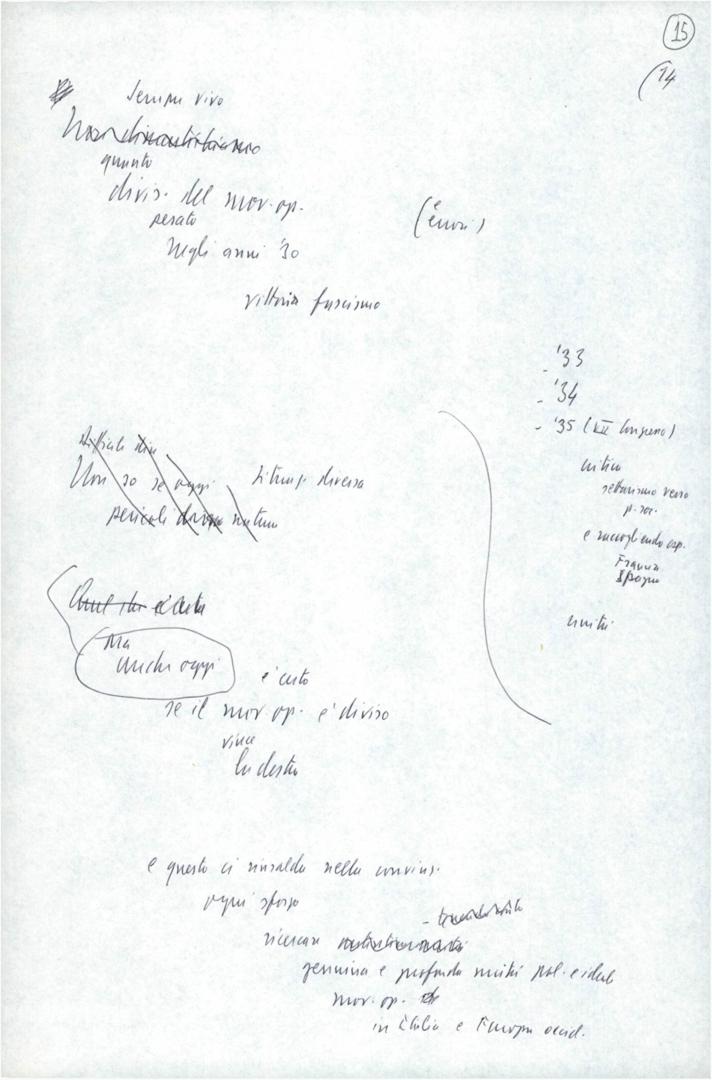 15
(14
sempre vivo
Non dimentichiamo
quanto
divis. del mov. op.
(e errori)
pesato
negli anni '30
vittoria fascismo
- '33
- '34
- '35 (VII Congresso)
critica
settarismo verso
p. soc.
e raccogliendo esp.
Francia
Spagna
unità
difficile dire
Non so se oggi situaz. diversa
pericoli
è certo
Ma
anche oggi
è certo
se il mov. op. è diviso
vince
la destra
e questo ci rinsalda nella convinz.
ogni sforzo
ricercare
genuina e profonda unità pol. e ideale
mov. op.
in Italia e Europa occid.